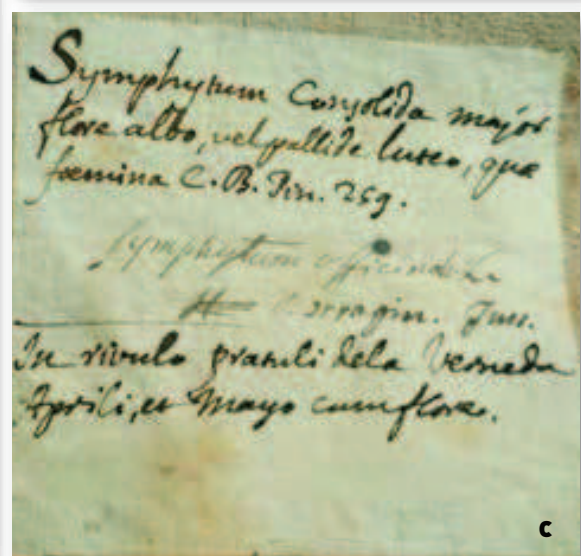 Symphytum Consolida major
flore albo, vel pallide luteo, quæ
fœmina C. B. Pin. 259.
Symphytum officinale L.
Borragin. Juss.
In rivulo pratuli dela Verneda
Aprili, et Mayo cum flore.
C